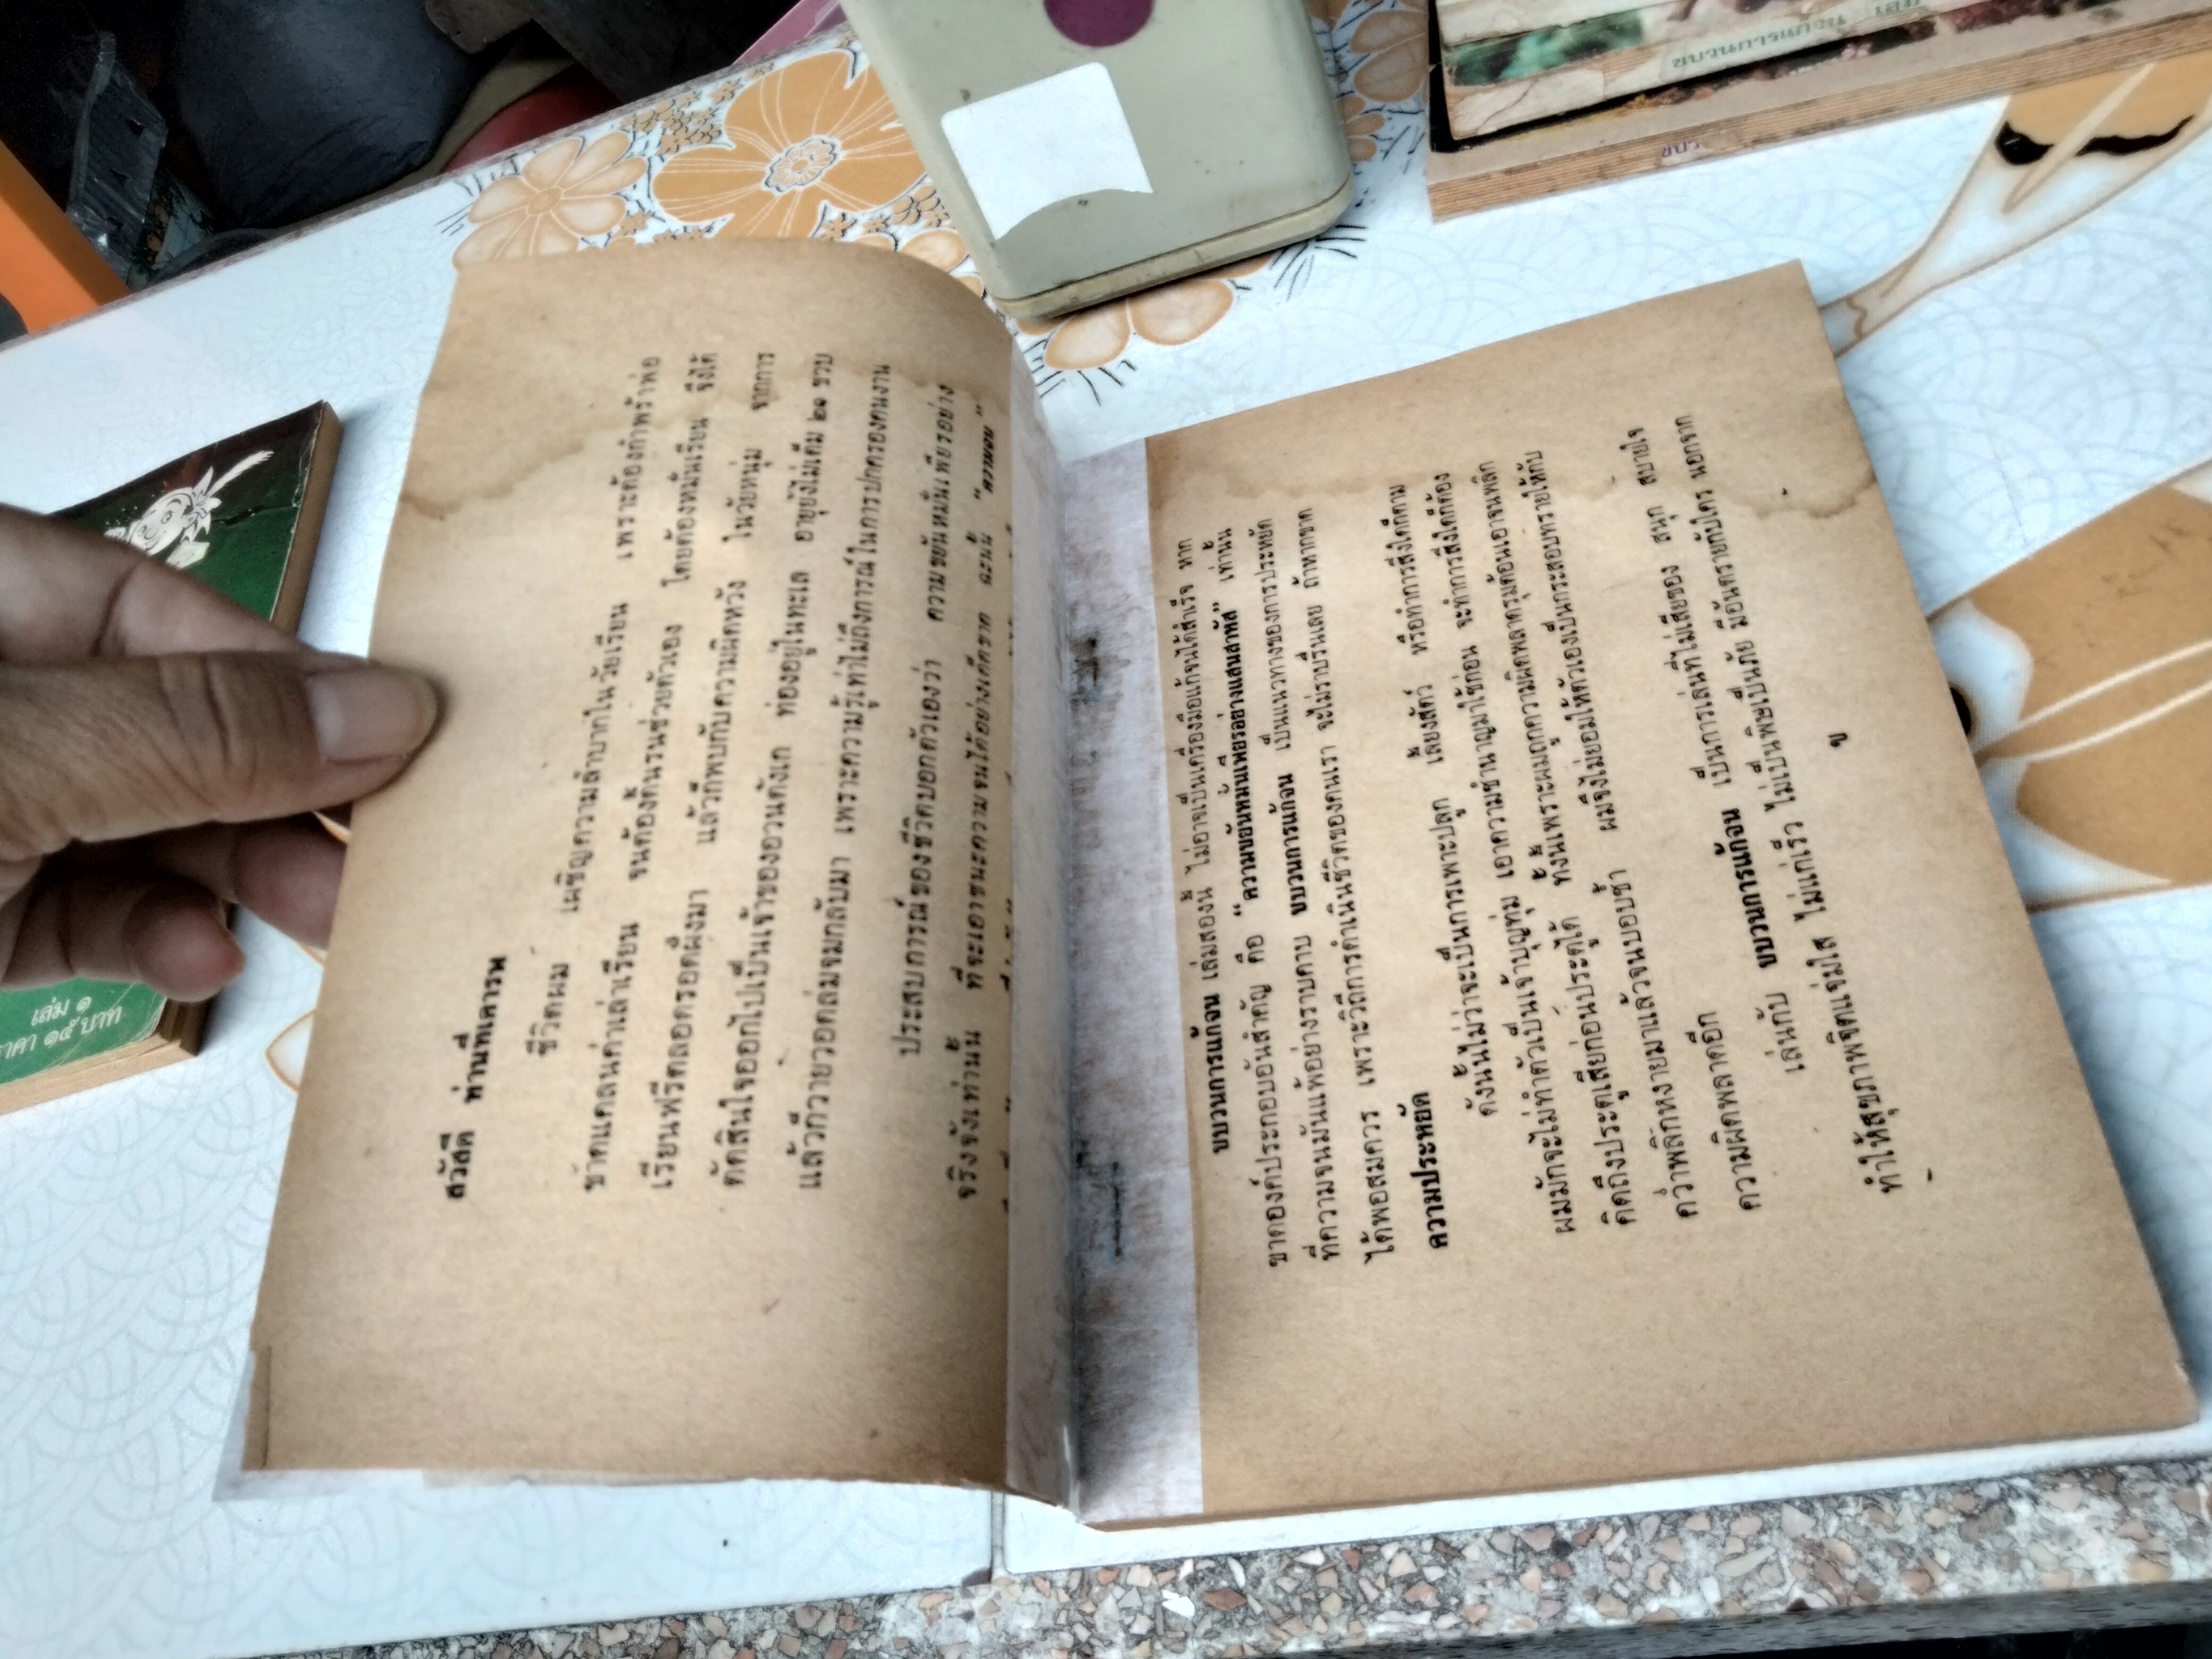 สวัสดี ท่านที่เคารพ
ชีวิตผม เผชิญความลำบากในวัยเรียน เพราะต้องกำพร้าพ่อ
ขาดแคลนค่าเล่าเรียน จนต้องดิ้นรนช่วยตัวเอง โดยต้องหมั่นเรียน จึงได้
เรียนฟรีตลอดรอดฝั่งมา แล้วก็พบกับความผิดหวัง ในวัยหนุ่ม จากการ
ตัดสินใจออกไปเป็นเจ้าของอวนตังเก ท่องอยู่ในทะเล อายุยังไม่เต็ม ๒๑ ขวบ
แล้วก็วายวอดล่มจมกลับมา เพราะความรู้เท่าไม่ถึงการณ์ในการปกครองคนงาน
ประสบการณ์ของชีวิตบอกตัวเองว่า ความขยันหมั่นเพียรอย่าง
จริงจังเท่านั้น ที่จะเอาชนะความจนได้อย่างเด็ดขาด ชนะ
ขบวนการแก้จน เล่มสองนี้ ไม่อาจเป็นเครื่องมือแก้จนได้สำเร็จ หาก
ขาดองค์ประกอบอันสำคัญ คือ “ความขยันหมั่นเพียรอย่างแสนสาหัส” เท่านั้น
ที่ความจนมันแพ้อย่างราบคาบ ขบวนการแก้จน เป็นแนวทางของการประหยัด
ได้พอสมควร เพราะวิถีการดำเนินชีวิตของคนเรา จะไม่ราบรื่นเลย ถ้าหากขาด
ความประหยัด
ดังนั้นไม่ว่าจะเป็นการเพาะปลูก เลี้ยงสัตว์ หรือทำการสิ่งใดก็ตาม
ผมมักจะไม่ทำตัวเป็นเจ้าบุญทุ่ม เอาความชำนาญมาใช้ก่อน จะทำการสิ่งใดก็ต้อง
คิดถึงประตูเสียก่อนประตูได้ ทั้งนี้เพราะผมถูกความผิดพลาดรุมต้อนเอาจนพลิก
คว่ำพลิกหงายมาแล้วจนบอบช้ำ ผมจึงไม่ยอมให้ตัวเองเป็นกระสอบทรายให้กับ
ความผิดพลาดอีก
เล่นกับ ขบวนการแก้จน เป็นการเล่นที่ไม่เสียของ สนุก สบายใจ
ทำให้สุขภาพจิตแจ่มใส ไม่แก่เร็ว ไม่เป็นพิษเป็นภัย มีอันตรายกับใคร นอกจาก
ข
เล่ม ๑
ราคา ๑๕ บาท